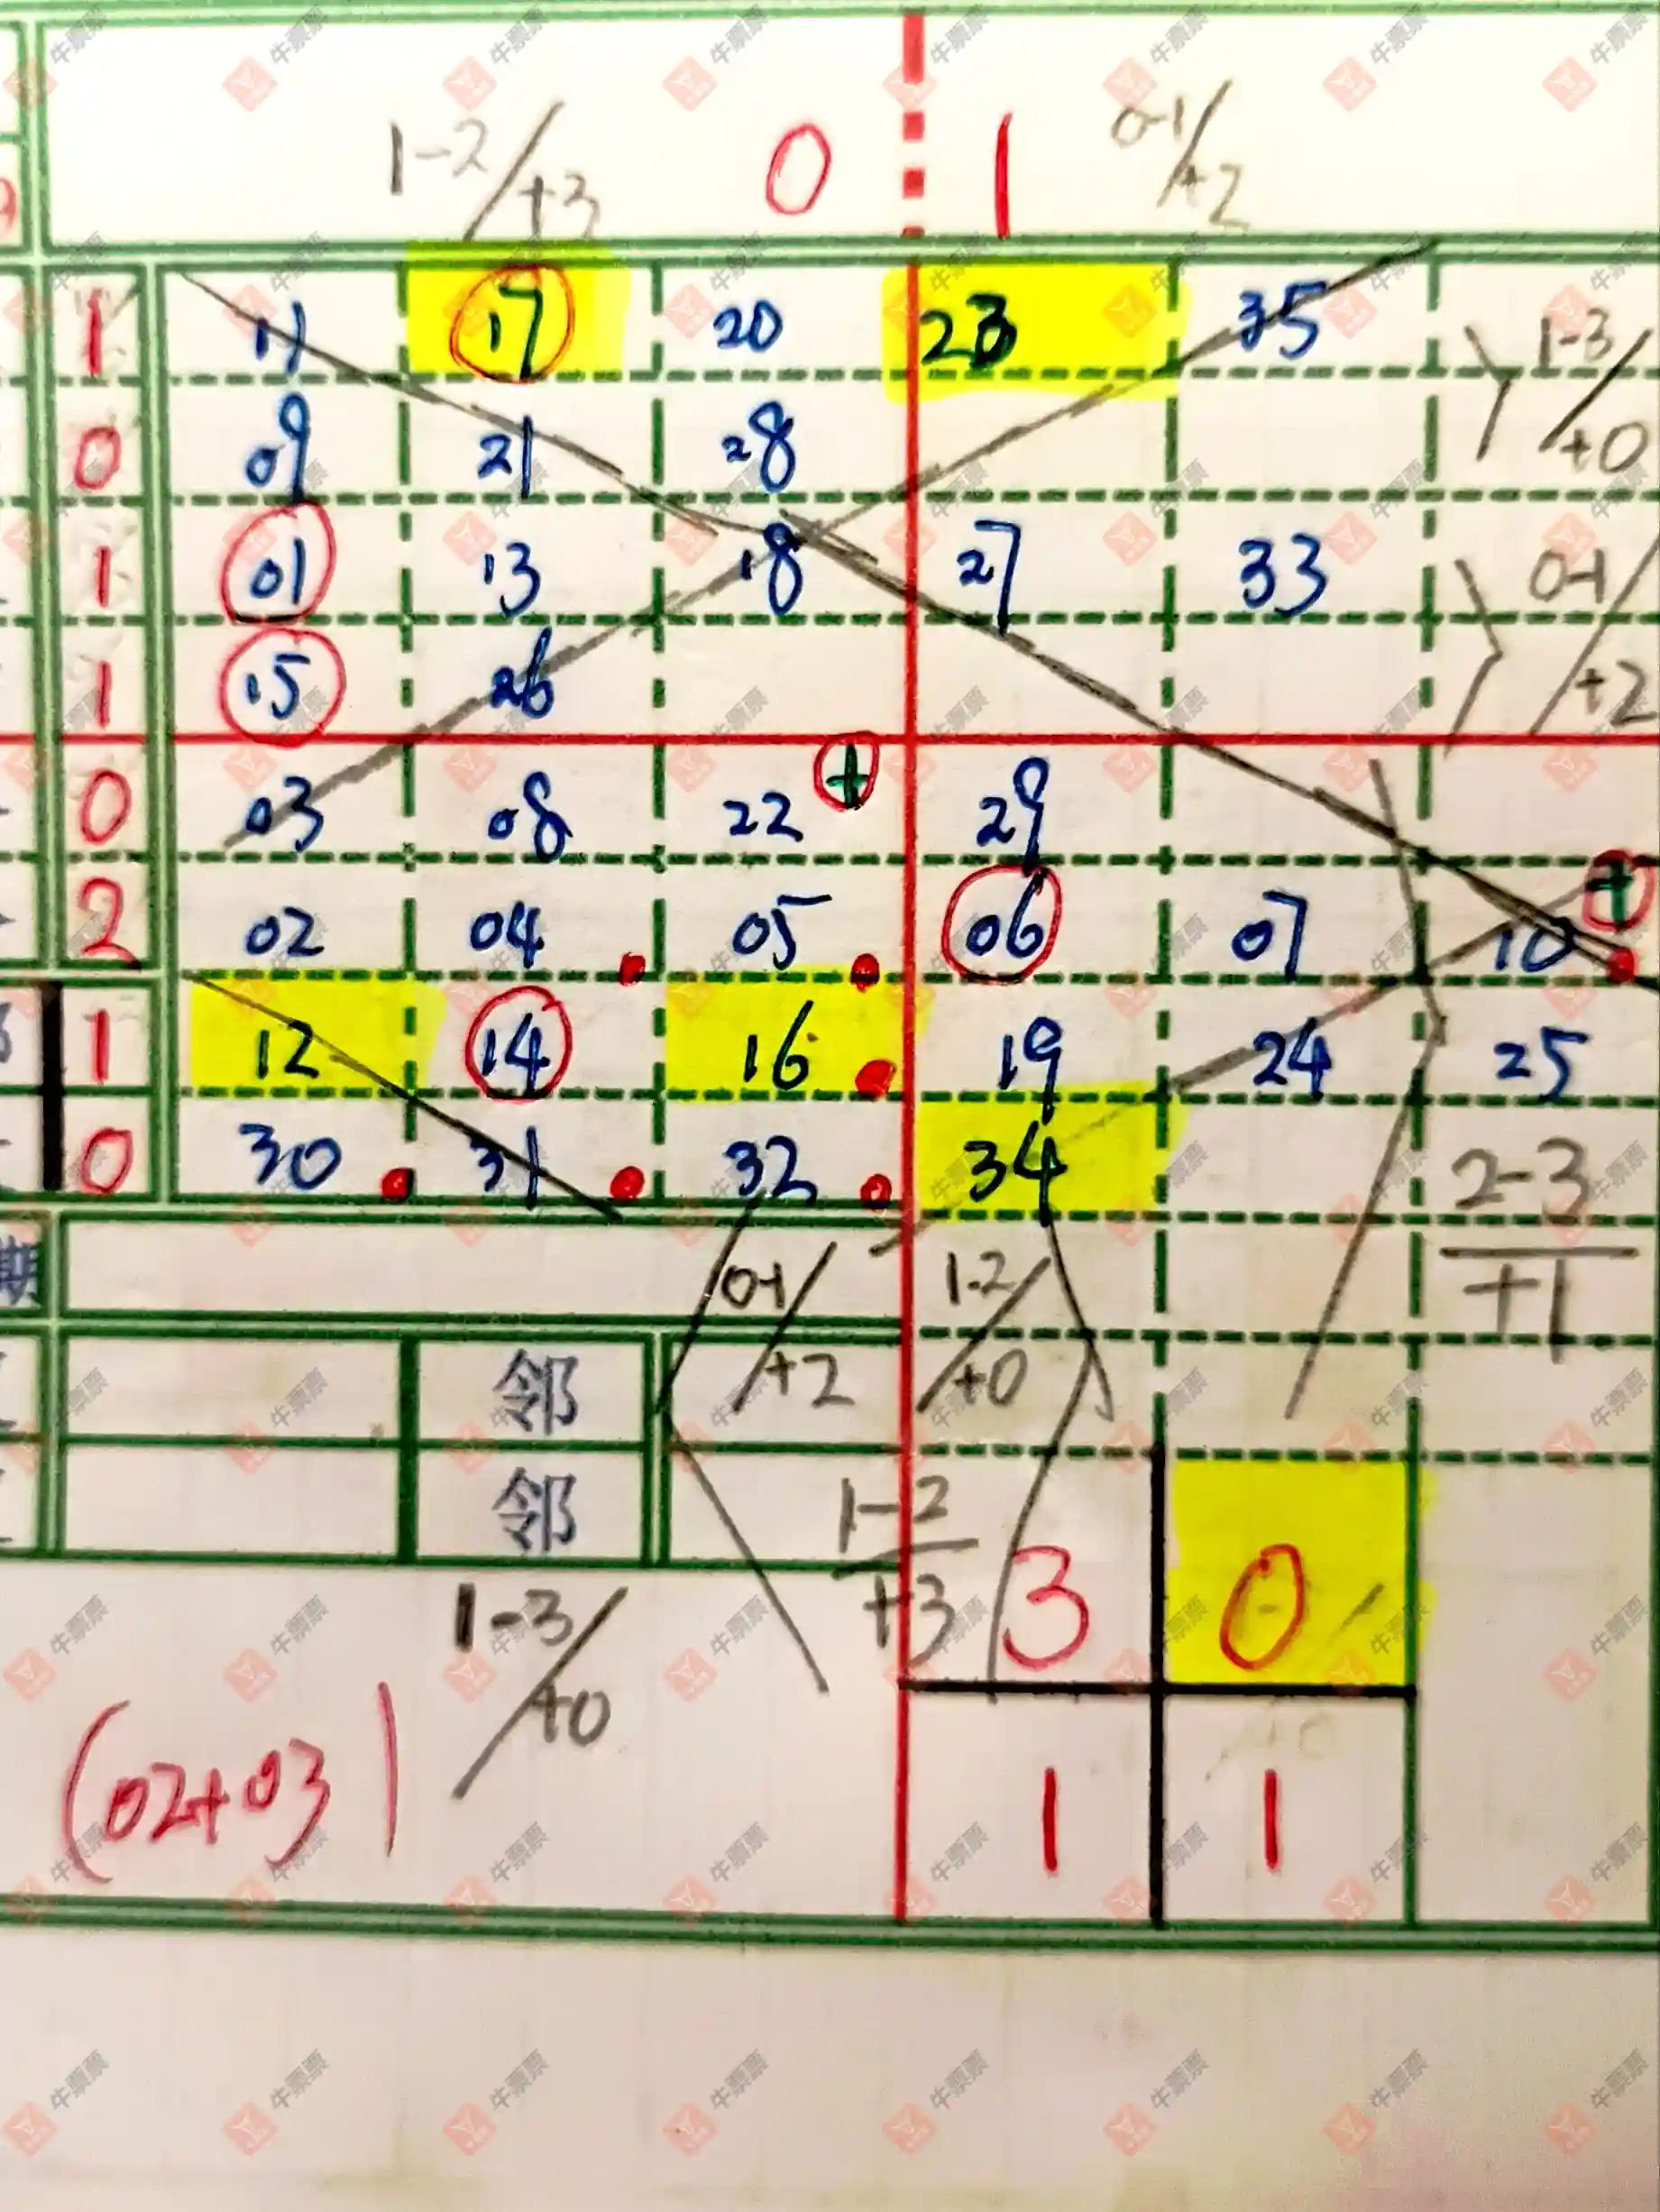 1-2/+3 0 1 0-1/+2
1 11 17 20 23 35 1-3/+0
0 09 21 28
1 01 13 18 27 33 0-1/+2
1 15 26
0 03 08 22 + 29
2 02 04 05 06 07 10 +
1 12 14 16 19 24 25
0 30 31 32 34 2-3/+1
期 0-1/+2 1-2/+0
邻
邻 1-2/+3 3 0
1-3/+0
(02+03) 1 1
牛票票